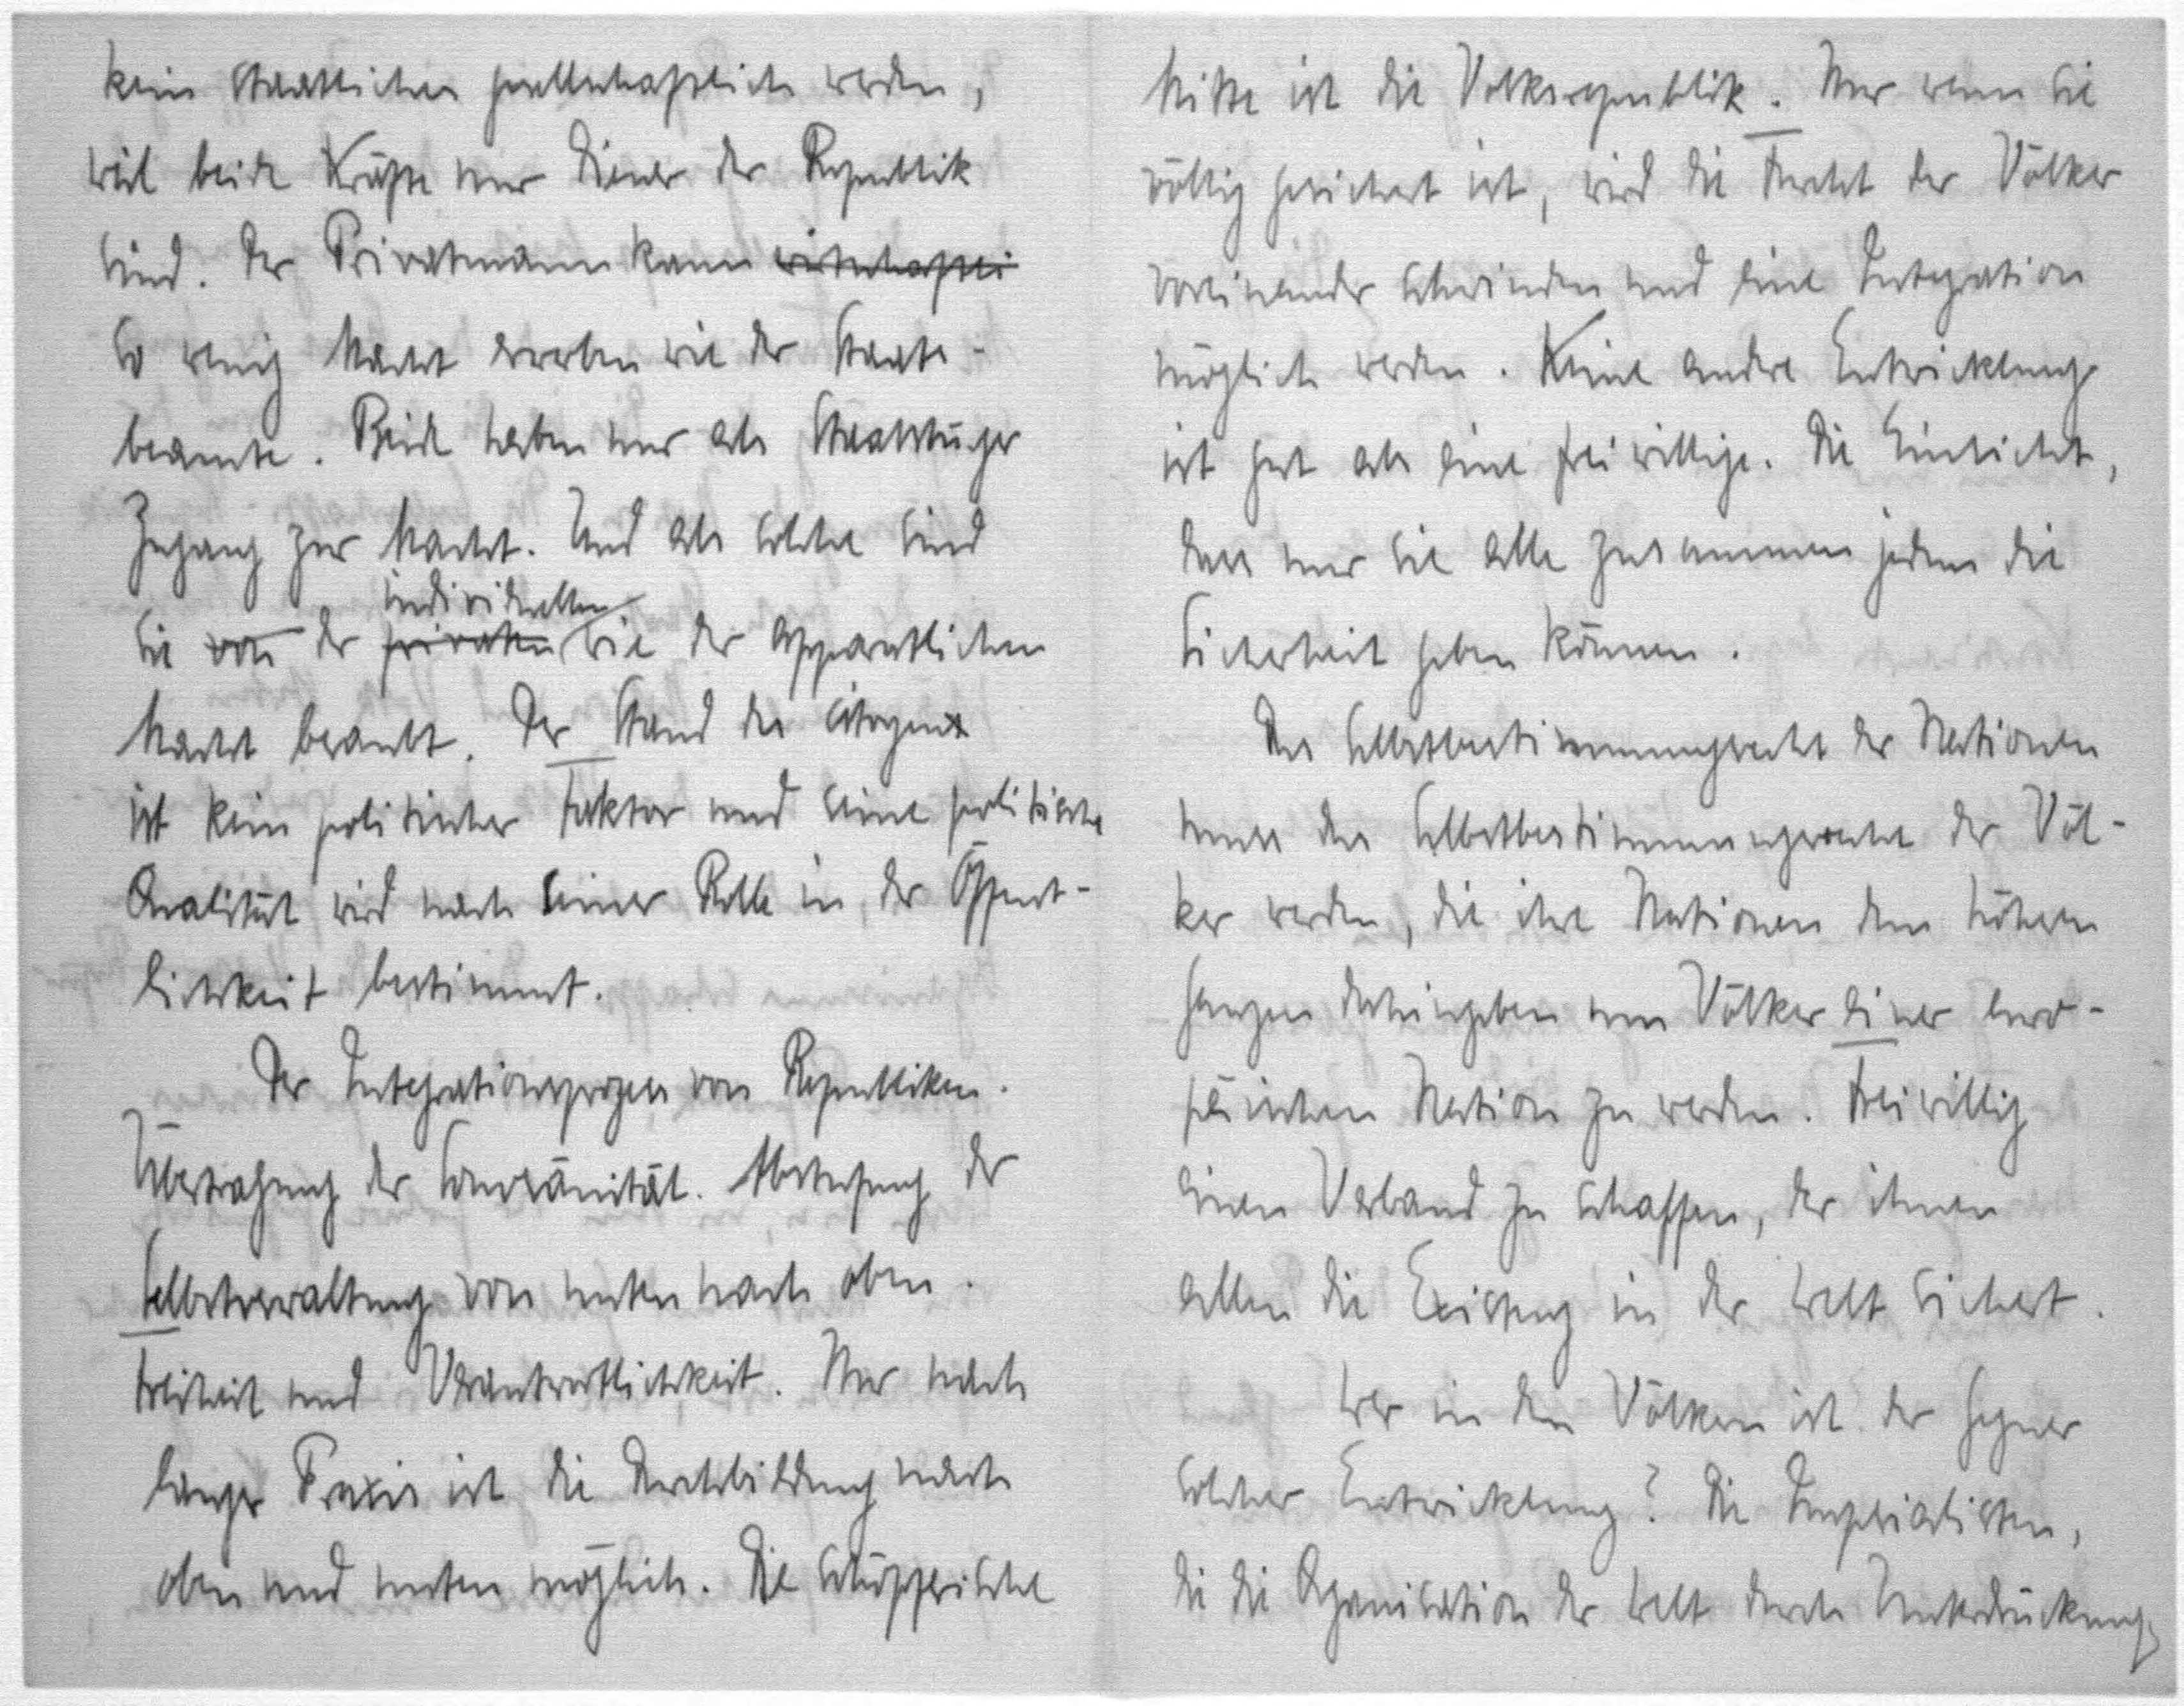 kein Staatlicher gesellschaftlich werden,
weil beide Kräfte nur Diener der Republik
sind. Der Privatmann kann wirtschaftli
so wenig Macht erwerben wie der Staats-
beamte. Beide haben nur als Staatsbürger
Zugang zur Macht. Und als solche sind
individuellen
sie von der privaten wie der apparatlichen
Macht beraubt. Der Stand des Citoyens
ist kein politischer Faktor und seine politische
Qualität wird nach seiner Rolle in der Öffent-
lichkeit bestimmt.
Der Integrationsprozess von Republiken.
Übertragung der Souveränität. Abstufung der
Selbstverwaltung von unten nach oben.
Freiheit und Verantwortlichkeit. Nur nach
langer Praxis ist die Durchbildung nach
oben und unten möglich. Die schöpferische
Mitte ist die Volksrepublik. Nur wenn sie
völlig gesichert ist, wird die Furcht der Völker
voreinander schwinden und eine Integration
möglich werden. Keine andre Entwicklung
ist gut als eine freiwillige. Die Einsicht,
dass nur sie alle zusammen jedem die
Sicherheit geben können.
Das Selbstbestimmungsrecht der Nationen
muss das Selbstbestimmungsrecht der Völ-
ker werden, die ihre Nationen dem höheren
Ganzen dahingeben um Völker einer euro-
päischen Nation zu werden. Freiwillig
einen Verband zu schaffen, der ihnen
allen die Existenz in der Welt sichert.
Wer in den Völkern ist der Gegner
solcher Entwicklung? Die Imperialisten,
die die Organisation der Welt durch Unterdrückung